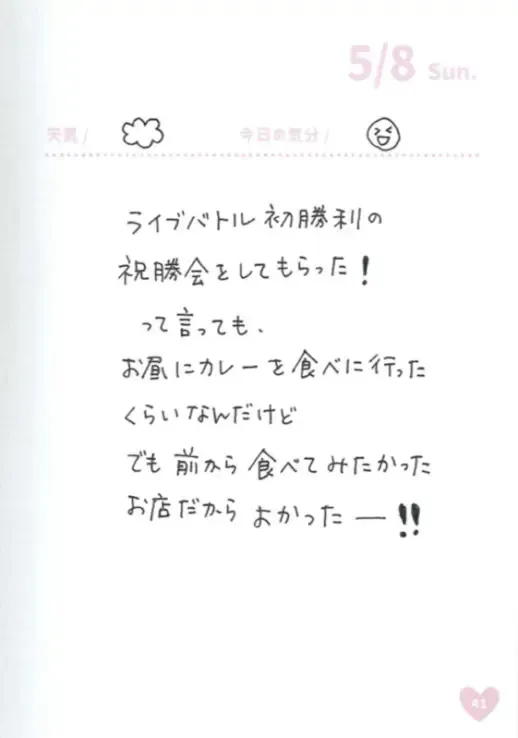 5/8 Sun.
天気/ 今日の気分/
ライブバトル初勝利の
祝勝会をしてもらった!
って言っても、
お昼にカレーを食べに行った
くらいなんだけど
でも前から食べてみたかった
お店だから よかったー!!
41